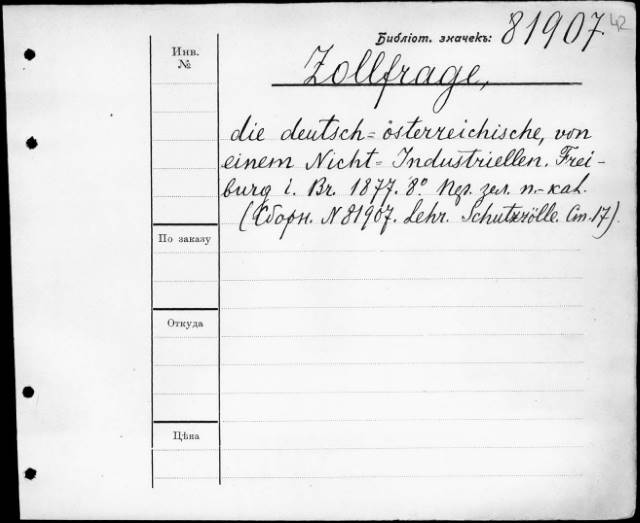 Библіот. значекъ: 81907 42
Инв.
№
Zollfrage,
die deutsch=österreichische, von
einem Nicht=Industriellen. Frei-
burg i. Br. 1877. 8° зел. п.-каl.
(Сборн. N 81907. Lehr. Schutzzölle. 17).
По заказу
Откуда
Цѣна